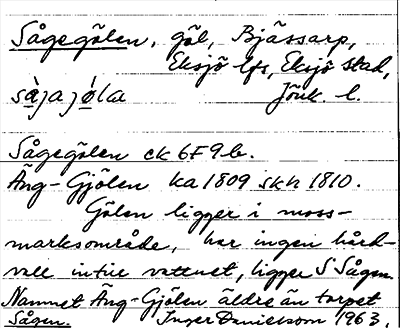 Sågegölen, göl, Bjässarp,
Eksjö lfs, Eksjö stad,
sàjajóla Jönk. l.
Sågegölen ek 6F9b.
Äng-Gjölen ka 1809 skh 1810.
Gölen ligger i moss-
marksområde, har ingen hård-
vall intill vattnet, ligger S Sågen.
Namnet Äng-Gjölen äldre än torpet
Sågen. Inger Danielsson 1963.